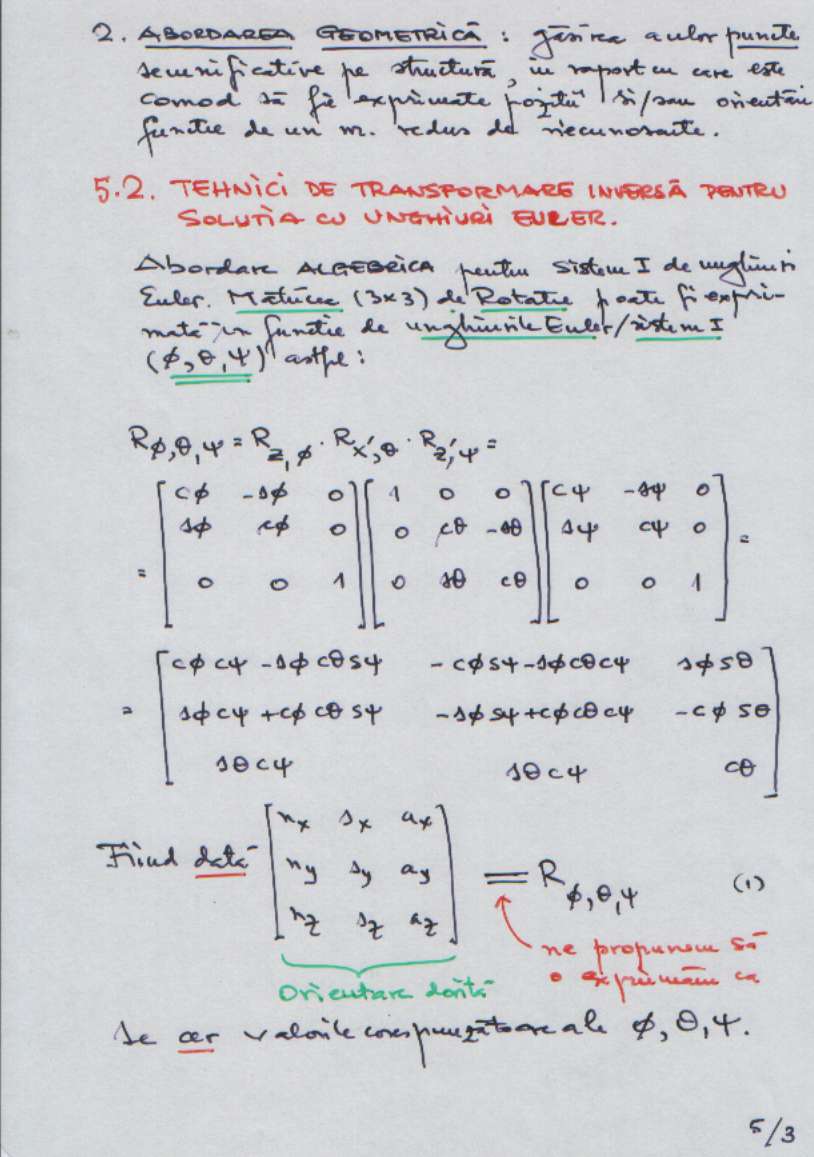 2. ABORDAREA GEOMETRICĂ : găsirea acelor puncte
semnificative pe structură, în raport cu care este
comod să fie exprimate poziții și/sau orientări
funcție de un nr. redus de necunoscute.
5.2. TEHNICI DE TRANSFORMARE INVERSĂ PENTRU
SOLUȚIA CU UNGHIURI EULER.
Abordare ALGEBRICA pentru Sistem I de unghiuri
Euler. Matricea (3x3) de Rotatie poate fi expri-
mată în functie de unghiurile Euler/sistem I
(ϕ, θ, ψ) astfel :
Rϕ,θ,ψ = Rz,ϕ · Rx',θ · Rz',ψ =
= [cϕ -sϕ 0] [1 0 0] [cψ -sψ 0]
[sϕ cϕ 0] [0 cθ -sθ] [sψ cψ 0] =
[0 0 1] [0 sθ cθ] [0 0 1]
[cϕ cψ -sϕ cθ sψ -cϕsψ-sϕcθcψ sϕsθ]
= [sϕ cψ +cϕ cθ sψ -sϕsψ+cϕcθcψ -cϕ sθ]
[sθcψ sθcψ cθ]
[nx sx ax]
Fiind dată [ny sy ay] = Rϕ,θ,ψ (1)
[nz sz az]
ne propunem să
o exprimăm ca
Orientare dorită
Se cer valorile corespunzătoare ale ϕ, θ, ψ.
5/3